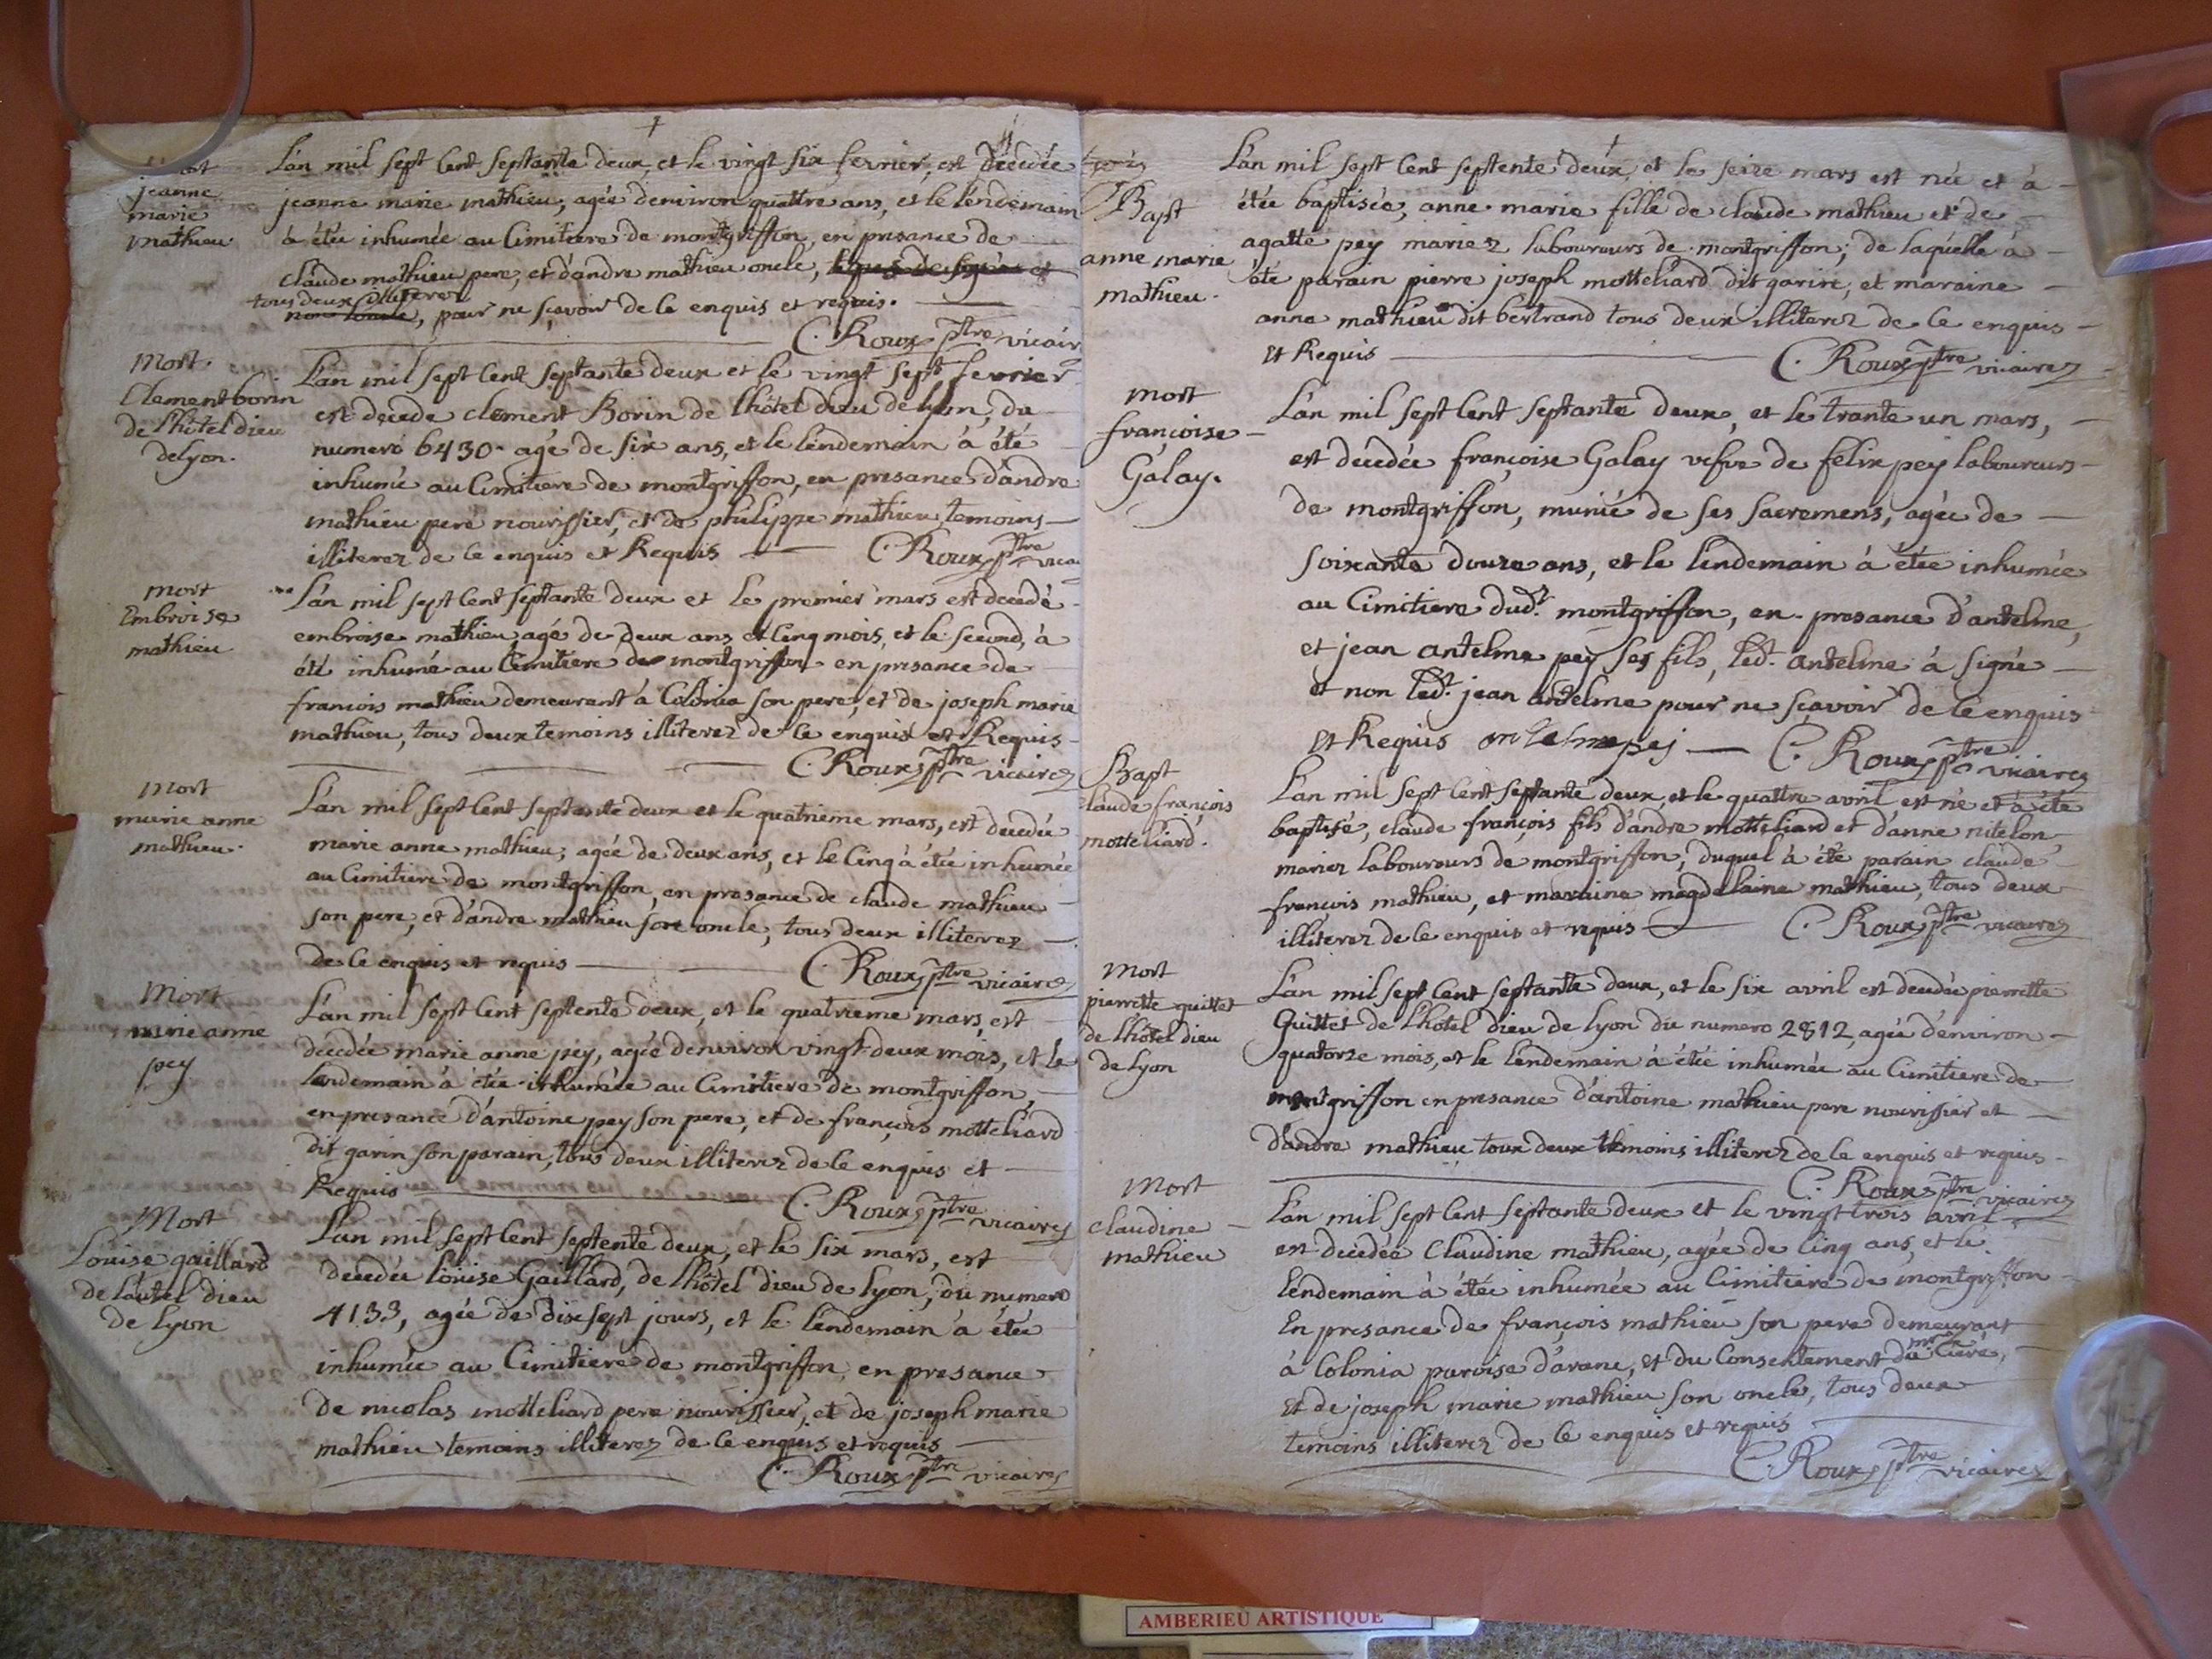 jeanne
marie
mathieu
L'an mil sept cent septante deux, et le vingt six fevrier, est décedée
jeanne marie mathieu, agée denviron quattre ans, et le lendemain
à étée inhumée au Cimitiere de montgriffon, en presance de
claude mathieu pere, et d'andre mathieu oncle,
tous deux illiterez
pour ne sçavoir de ce enquis et requis.
C. Roux ptre vicair
Mort
Clement borin
de l'hôtel dieu
de lyon.
L'an mil sept cent septante deux et le vingt sept fevrier
est decede clement Borin de l'hôtel dieu de lyon, du
numero 6430. agé de six ans, et le lendemain à été
inhumé au Cimitiere de montgriffon, en presance d'andre
mathieu pere nourissier, et de philippe mathieu temoins
illiterez de ce enquis et Requis C. Roux ptre vica
mort
Embroise
mathieu
L'an mil sept cent septante deux et le premier mars est decedé
embroise mathieu, agé de deux ans et cinq mois, et le second, à
été inhumé au Cimitiere de montgriffon en presance de
francois mathieu demeurant à Colonia son pere, et de joseph marie
mathieu, tous deux temoins illiterez de ce enquis et Requis
C. Roux ptre vicaire
mort
marie anne
mathieu.
L'an mil sept cent septante deux et le quatrieme mars, est decedée
marie anne mathieu, agée de deux ans, et le cinq à étée inhumée
au Cimitiere de montgriffon, en presance de claude mathieu
son pere, et d'andre mathieu son oncle, tous deux illiterez
de ce enquis et requis C. Roux ptre vicaire
Mort
marie anne
pey
L'an mil sept cent septente deux, et le quatrieme mars, est
decedée marie anne pey, agée denviron vingt-deux mois, et le
lendemain à étée inhumée au Cimitiere de montgriffon,
en presance d'antoine pey son pere, et de françois motteliard
dit garin son parain, tous deux illiterez de ce enquis et
Requis C. Roux ptre vicaire
Mort
Louise gaillard
de l'autel dieu
de lyon
L'an mil sept cent septente deux, et le six mars, est
decedée louise Gaillard, de l'hôtel dieu de lyon, du numero
4133, agée de dix sept jours, et le lendemain à étée
inhumée au Cimitiere de montgriffon, en presance
de nicolas motteliard pere nourissier, et de joseph marie
mathieu temoins illiterez de ce enquis et requis
C. Roux ptre vicaire
Bapt
anne marie
mathieu.
L'an mil sept cent septente deux et le seize mars est née et à
étée baptisée, anne marie fille de claude mathieu et de
agatte pey mariez laboureurs de montgriffon; de laquelle à
été parain pierre joseph motteliard dit garin, et maraine
anne mathieu dit bertrand tous deux illiterez de ce enquis
et Requis C. Roux ptre vicaire
mort
françoise
Galay.
L'an mil sept cent septante deux, et le trante un mars,
est décedée françoise Galay vefve de felix pey laboureurs
de montgriffon, munié de ses sacremens, agée de
soixante douze ans, et le lendemain à étée inhumée
au Cimitiere dudt. montgriffon, en presance d'antelme,
et jean antelme pey ses fils, ledt. antelme à signé
et non ledt. jean antelme pour ne sçavoir de ce enquis
et Requis antelme pej C. Roux ptre vicaire
Bapt
claude françois
motteliard.
L'an mil sept cent septante deux, et le quattre avril est né et à été
baptisé, claude françois fils d'andre motteliard et d'anne nitelon
mariez laboureurs de montgriffon, duquel à été parain claude
françois mathieu, et maraine magdelaine mathieu, tous deux
illiterez de ce enquis et requis C. Roux ptre vicaire
mort
pierrette quittet
de l'hôtel dieu
de lyon
L'an mil sept cent septante deux, et le six avril est decedée pierrette
Quittet de l'hotel dieu de lyon du numero 2812, agée d'environ
quatorze mois, et le lendemain à étée inhumée au Cimitiere de
montgriffon en presance d'antoine mathieu pere nourissier et
d'andre mathieu tous deux temoins illiterez de ce enquis et requis
C. Roux ptre vicaire
mort
claudine
mathieu
L'an mil sept cent septante deux et le vingt trois avril
est decedée Claudine mathieu, agée de cinq ans, et le
lendemain à étée inhumée au Cimitiere de montgriffon
en presance de françois mathieu son pere demeurant
à Colonia paroise d'arane, et du Consentement du mr. Curé,
et de joseph marie mathieu son oncle, tous deux
temoins illiterez de ce enquis et requis
C. Roux ptre vicaire
AMBERIEU ARTISTIQUE